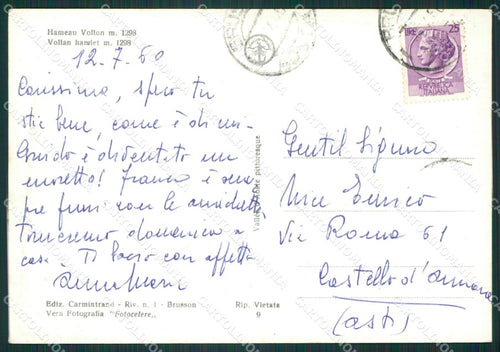 Hameau Vollon m. 1298
Vollan hamlet m. 1298
12.7.60
Carissima, spero tu
stia bene, come è di noi
Guido è diventato un
moretto! Franco è sem
pre fuori con le amichette
Torneremo domenica a
casa. Ti bacio con affetto
Anna Maria
Ediz. Carmintrand - Riv. n. 1 - Brusson
Vera Fotografia "Fotocelere"
Rip. Vietata
9
Vallée d'Ayas pittoresque
LIRE 25
REPVBBLICA
ITALIANA
Gentil Signora
Nice Enrico
Via Roma 61
Castello d'Annone
(Asti)
CARTOLINOMANIA